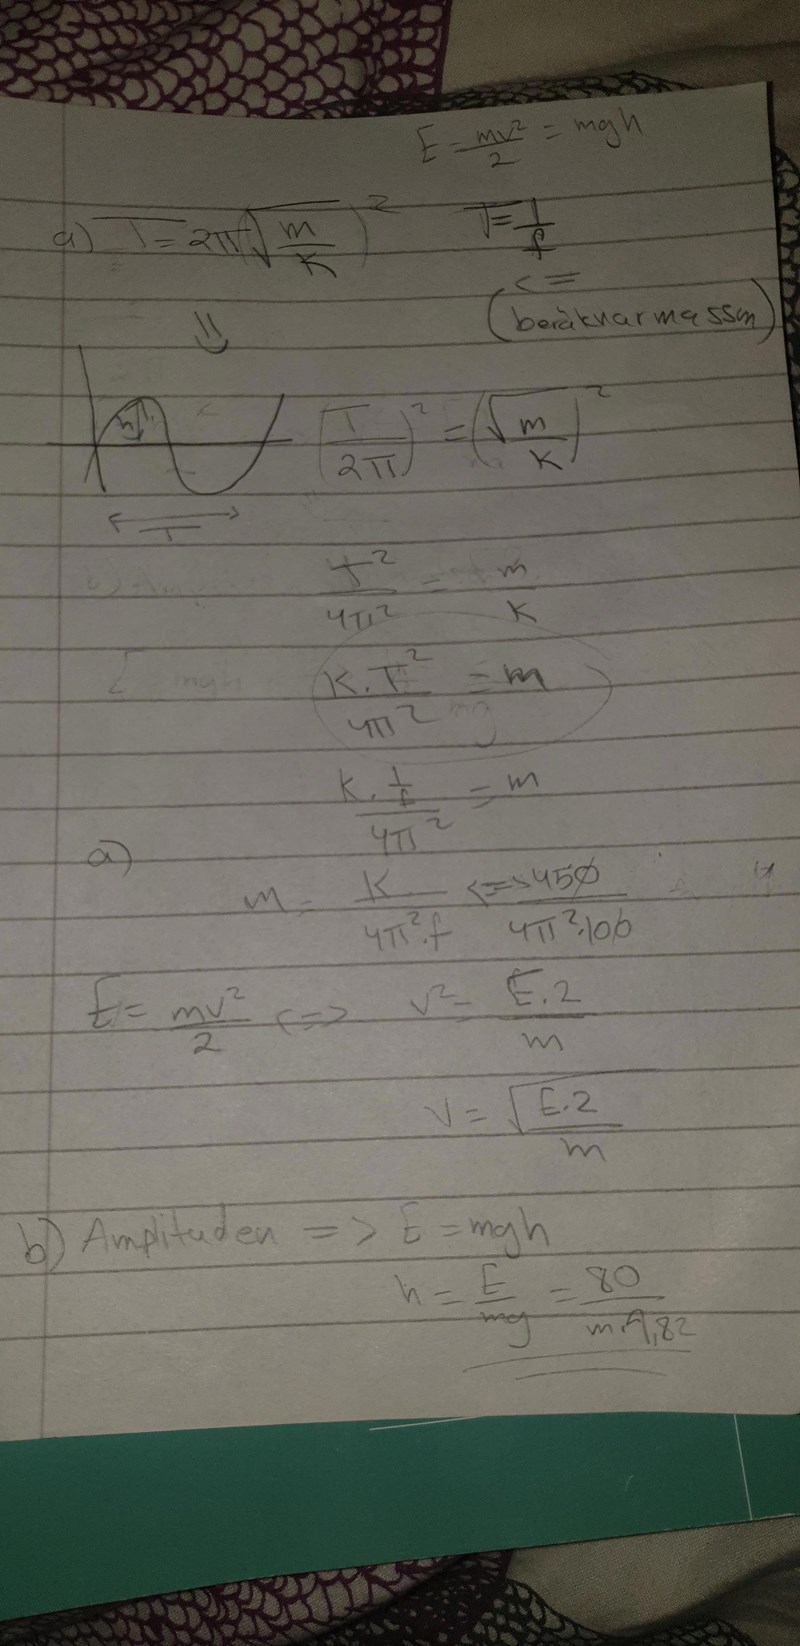 E = mv²/2 = mgh
a) T = 2π(√m/K)² T = 1/f
<=
(beräknar massan)
⇓
(T/2π)² = (√m/K)²
T
T²/4π² = m/K
K · T²/4π² = m
K · 1/f/4π² = m
a)
m = K/4π²·f <=> 450/4π²·100
E = mv²/2 <=> v² = E·2/m
v = √E·2/m
b) Amplituden => E = mgh
h = E/mg = 80/m·9,82